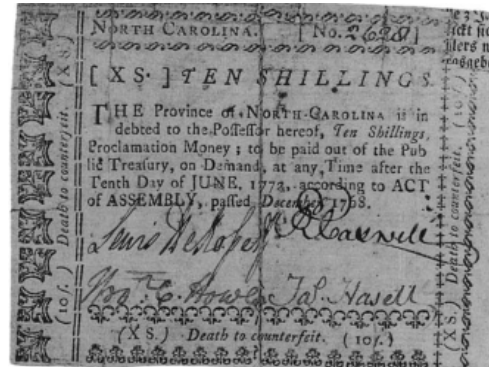 NORTH CAROLINA. [ No. 2628 ]
[ X S. ] TEN SHILLINGS
THE Province of NORTH-CAROLINA is in
debted to the Poſſeſſor hereof, Ten Shillings,
Proclamation Money; to be paid out of the Pub
lic Treaſury, on Demand, at any Time after the
Tenth Day of JUNE, 1772, according to ACT
of ASSEMBLY, paſſed December 1768.
Lewis DeRosset R Caswell
Jas. Hasell
(X S.) Death to counterfeit. (10ſ.)
(10ſ.) Death to counterfeit. (X S)
(XS.) Death to counterfeit. (10ſ.)